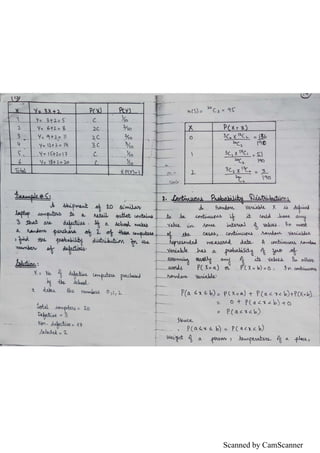 X Y= 3X+2 P(X) P(Y)
1 Y= 3+2=5 C 1/10
2 Y= 6+2=8 2C 2/10
3 Y= 9+2=11 2C
4 Y= 12+2=14 3C 3/10
5 Y= 15+2=17 C 1/10
6 Y= 18+2=20 C 1/10
Total
Example # 5:
A shipment of 20 similar
laptop computers to a retail outlet contains
3 that are defective. If a school makes
a random purchase of 2 of these computers
find the probability distribution for the
number of defectives.
Solution:
X = No of defective computers purchased
by the school.
X takes the numbers 0,1,2
Total computers = 20
Defective = 3
Non-defective = 17
Selected = 2
n(S) = 20C2 = 190
X P(X=x)
0
1
2
2. Continuous Probability Distribution:
A Random Variable X is defined
to be continuous if it could have any
value in some interval of values. In most
of the cases continuous random variables
represented measured data. A continuous random
variable has a probability of zero of
assuming exactly any of its values. In other
words P(X=a) or P(X=b)=0. In continuous
random variable:
P(a≤x≤b) = P(x=a) + P(a<x<b)+P(X=b)
= 0 + P(a<x<b)+0
= P(a<x<b)
Hence
P(a≤x≤b) = P(a<x<b)
Weight of a person, temperature of a place,
Scanned by CamScanner